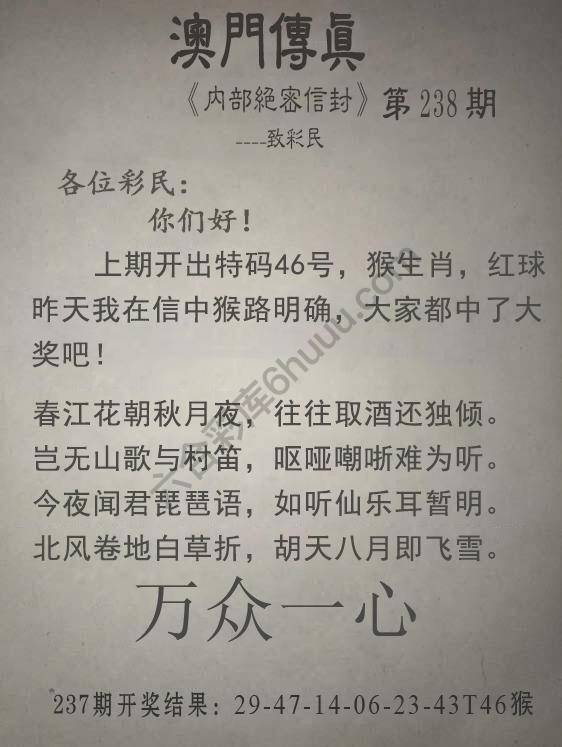 澳門傳真
《内部絕密信封》第238期
----致彩民
各位彩民：
你们好！
上期开出特码46号，猴生肖，红球
昨天我在信中猴路明确，大家都中了大
奖吧！
春江花朝秋月夜，往往取酒还独倾。
岂无山歌与村笛，呕哑嘲哳难为听。
今夜闻君琵琶语，如听仙乐耳暂明。
北风卷地白草折，胡天八月即飞雪。
万众一心
237期开奖结果：29-47-14-06-23-43T46猴
六合彩库6huuu.com